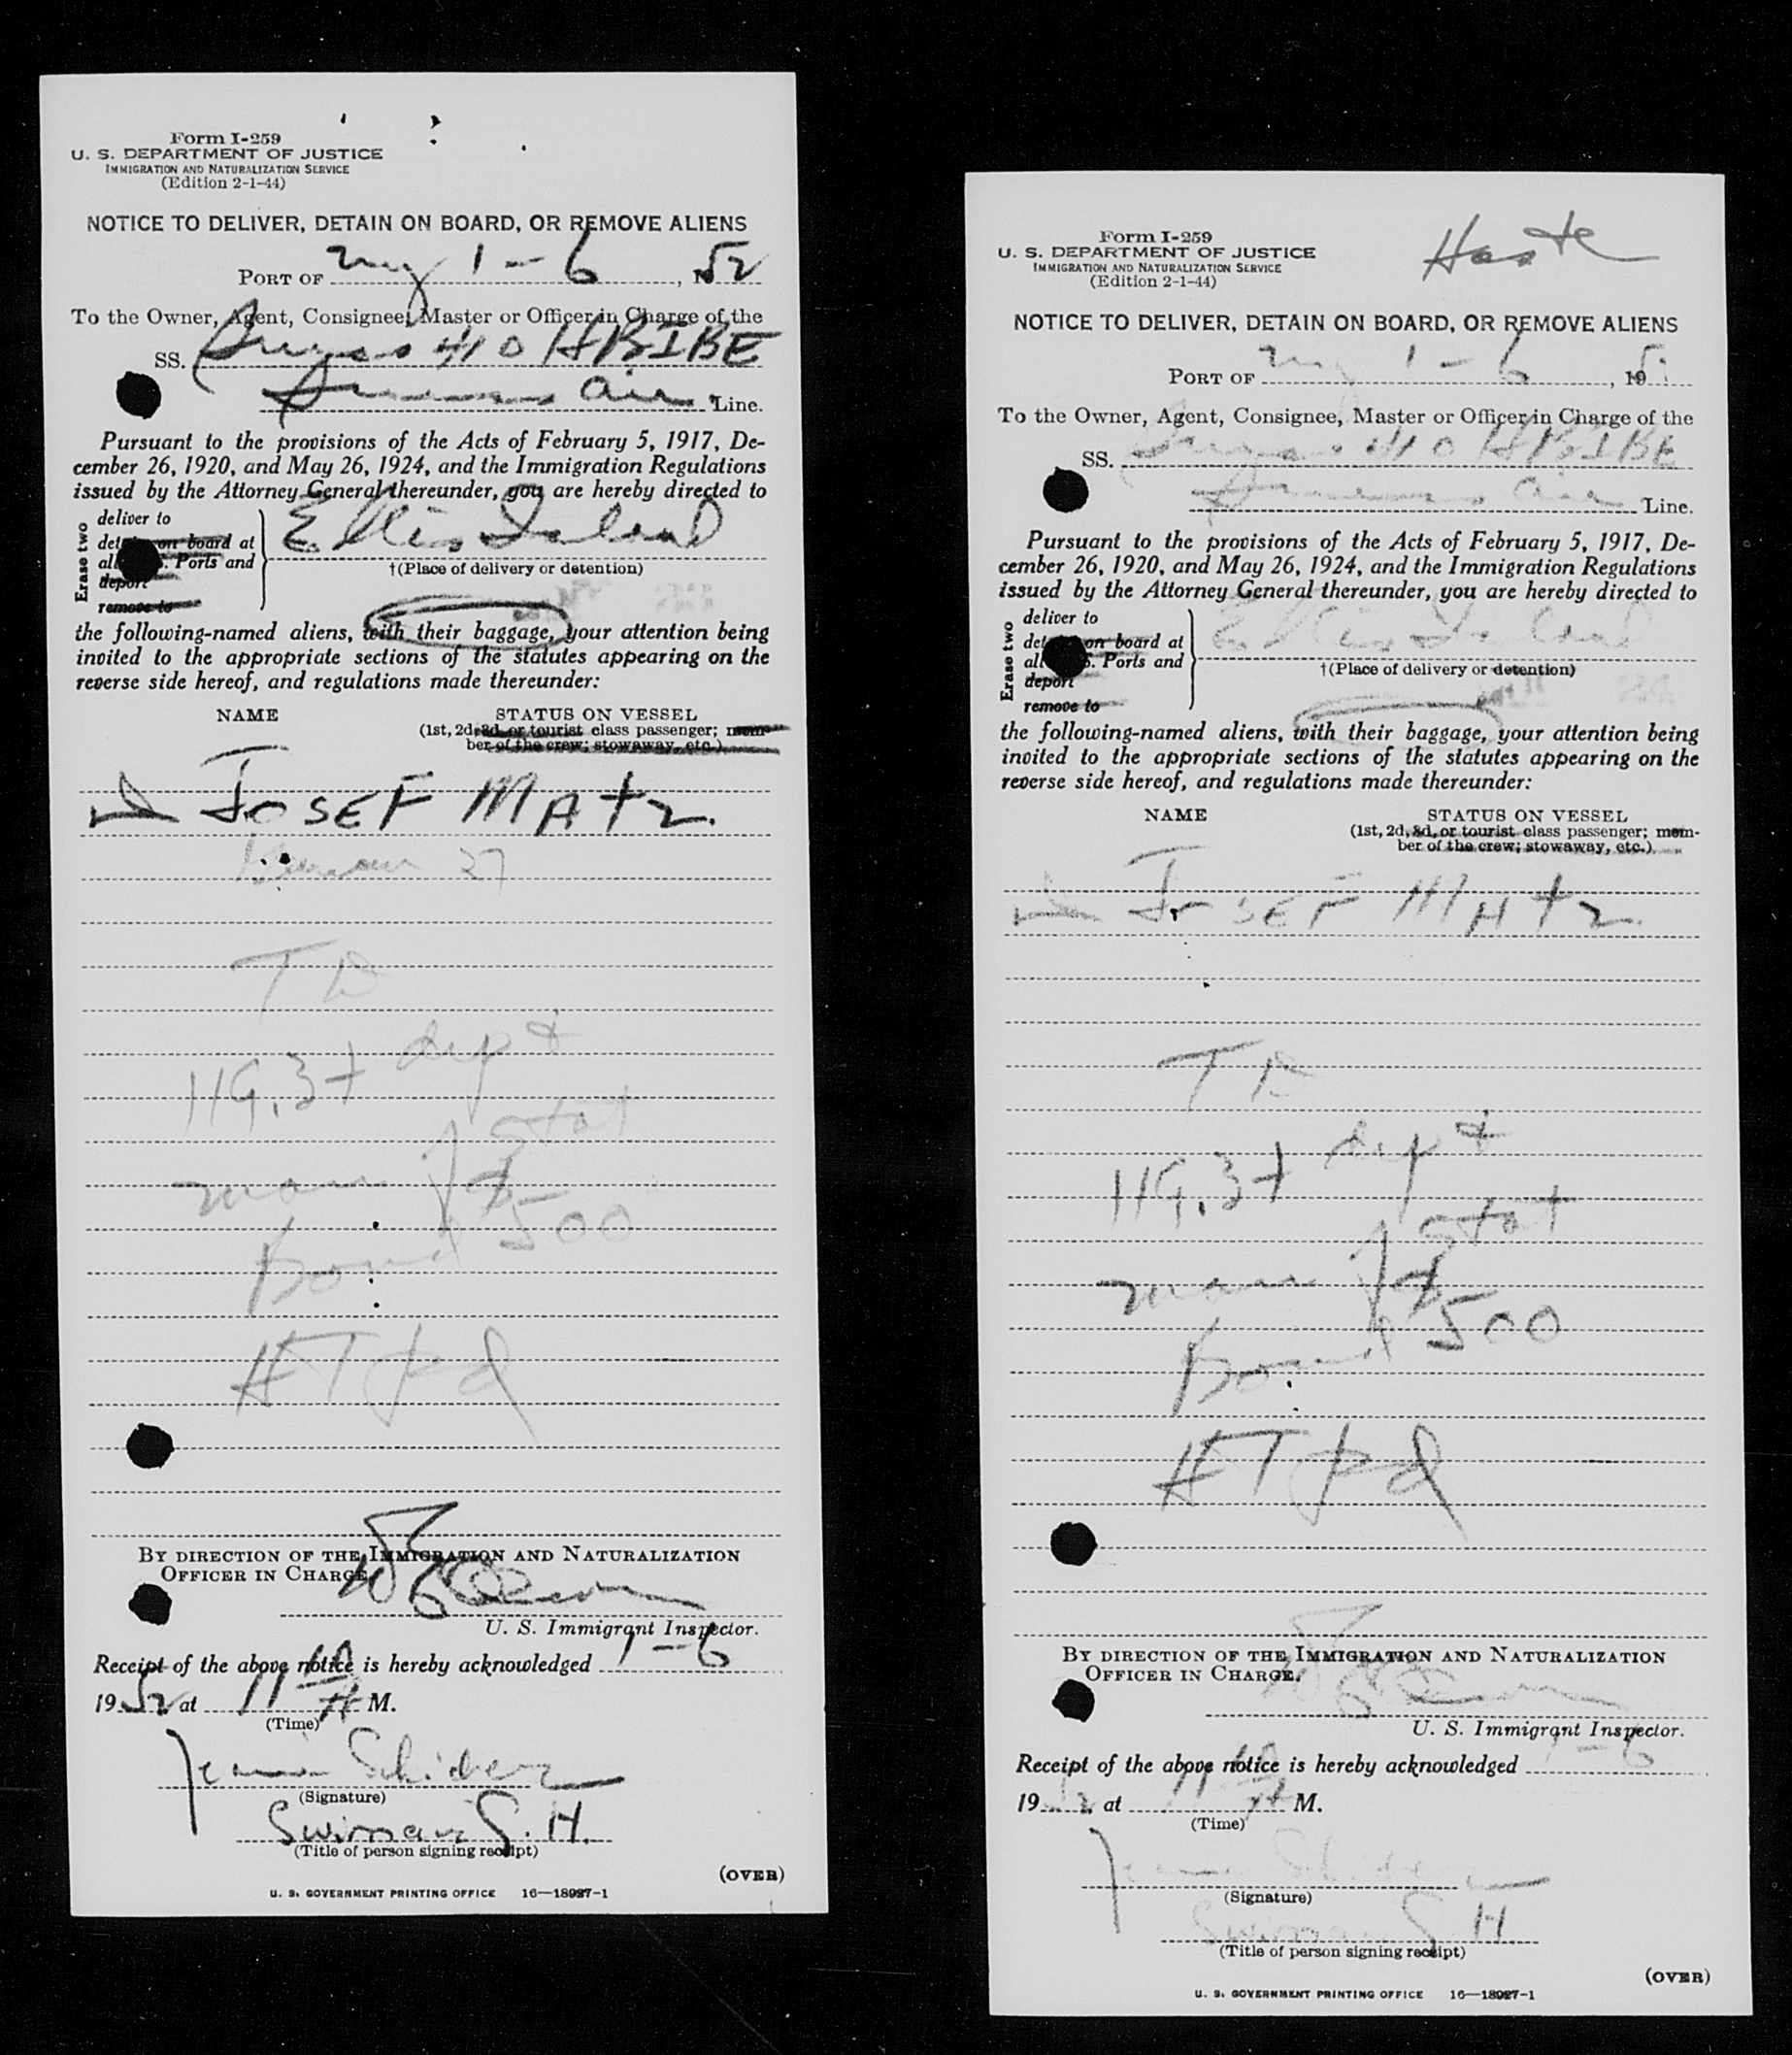 Form I-259
U. S. DEPARTMENT OF JUSTICE
IMMIGRATION AND NATURALIZATION SERVICE
(Edition 2-1-44)
NOTICE TO DELIVER, DETAIN ON BOARD, OR REMOVE ALIENS
PORT OF NY 1-6, 1952
To the Owner, Agent, Consignee, Master or Officer in Charge of the
SS. 410 HBIBE
Air Line.
Pursuant to the provisions of the Acts of February 5, 1917, De-
cember 26, 1920, and May 26, 1924, and the Immigration Regulations
issued by the Attorney General thereunder, you are hereby directed to
Erase two
deliver to
on board at
Ports and
deport
remove to
Ellis Island
†(Place of delivery or detention)
the following-named aliens, with their baggage, your attention being
invited to the appropriate sections of the statutes appearing on the
reverse side hereof, and regulations made thereunder:
NAME STATUS ON VESSEL
(1st, 2d, 3d, or tourist class passenger; mem-
ber of the crew; stowaway, etc.)
JOSEF MATZ.
27
T D
HG. 3+ dept
Stat
500
bond
HT pd
BY DIRECTION OF THE IMMIGRATION AND NATURALIZATION
OFFICER IN CHARGE.
U. S. Immigrant Inspector.
Receipt of the above notice is hereby acknowledged 1-6
1952 at 11 M.
(Time)
(Signature)
G. H.
(Title of person signing receipt)
(OVER)
U. S. GOVERNMENT PRINTING OFFICE 16—18927-1
Form I-259
U. S. DEPARTMENT OF JUSTICE
IMMIGRATION AND NATURALIZATION SERVICE
(Edition 2-1-44)
NOTICE TO DELIVER, DETAIN ON BOARD, OR REMOVE ALIENS
PORT OF NY 1-6, 195
To the Owner, Agent, Consignee, Master or Officer in Charge of the
SS. 410 HBIBE
Air Line.
Pursuant to the provisions of the Acts of February 5, 1917, De-
cember 26, 1920, and May 26, 1924, and the Immigration Regulations
issued by the Attorney General thereunder, you are hereby directed to
Erase two
deliver to
on board at
Ports and
deport
remove to
Ellis Island
†(Place of delivery or detention)
the following-named aliens, with their baggage, your attention being
invited to the appropriate sections of the statutes appearing on the
reverse side hereof, and regulations made thereunder:
NAME STATUS ON VESSEL
(1st, 2d, 3d, or tourist class passenger; mem-
ber of the crew; stowaway, etc.)
JOSEF MATZ.
T D
HG. 3+ dept
Stat
500
bond
HT pd
BY DIRECTION OF THE IMMIGRATION AND NATURALIZATION
OFFICER IN CHARGE.
U. S. Immigrant Inspector.
Receipt of the above notice is hereby acknowledged 1-6
1952 at 11 M.
(Time)
(Signature)
G. H.
(Title of person signing receipt)
(OVER)
U. S. GOVERNMENT PRINTING OFFICE 16—18927-1